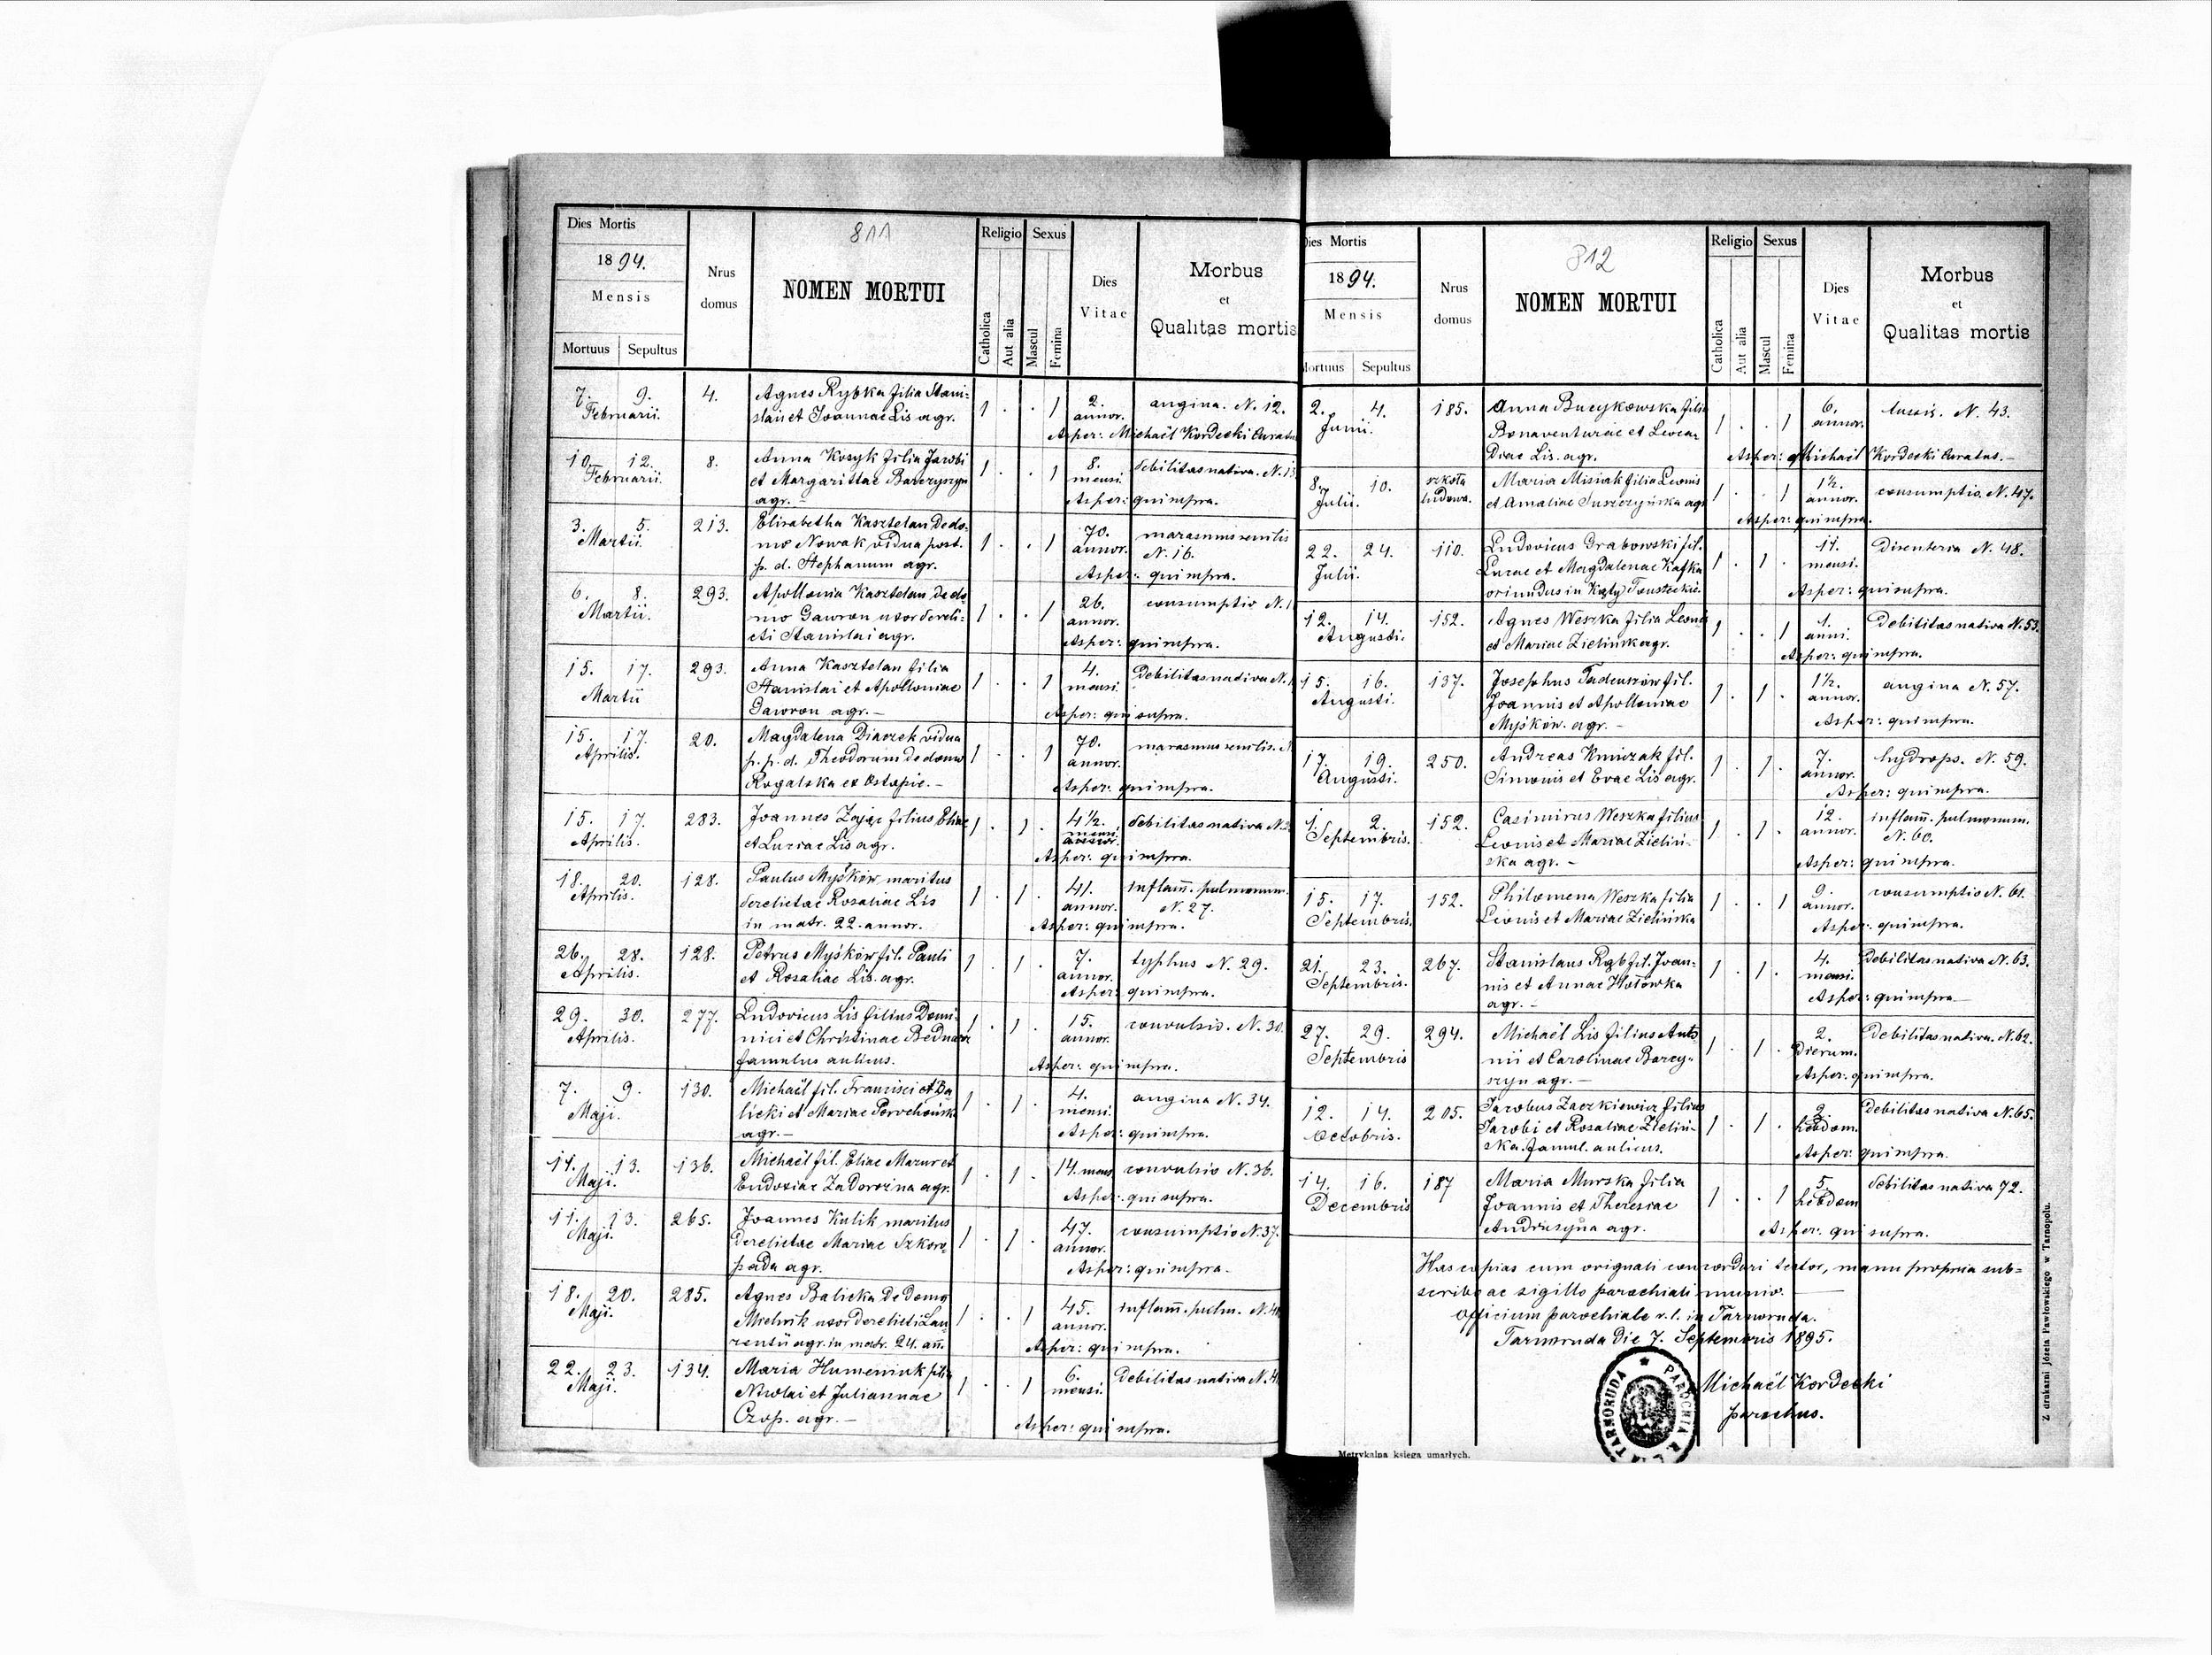 Dies Mortis
811
Religio Sexus
1894.
Mensis
Nrus domus
NOMEN MORTUI
Catholica Aut alia Mascul Femina
Dies Vitae
Morbus
et
Qualitas mortis
Mortuus Sepultus
7. 9. 4. Agnes Rybka filia Stani= 1 . . 1 2. angina. N. 12.
Februarii. slai et Joannae Lis agr. annor.
Asper: Michaël Kordecki Curatus
10. 12. 8. Anna Kosyk filia Jacobi 1 . . 1 8. debilitas nativa. N.
Februarii. et Margarittae Barczyszyn mensi.
agr. - Asper: qui supra.
3. 5. 213. Elisabetha Kasztelan de do= 1 . . 1 70. marasmus senilis
Martii. mo Nowak, vidua post. annor. N. 16.
p. d. Stephanum agr. Asper: qui supra.
6. 8. 293. Apollonia Kasztelan de do 1 . . 1 26. consumptio N.
Martii. mo Gawron uxor dereli= annor.
cti Stanislai agr. Asper: qui supra.
15. 17. 293. Anna Kasztelan filia 1 . . 1 4. debilitas nativa N.
Martii Stanislai et Apolloniae mensi.
Gawron agr. - Asper: qui supra.
15. 17. 20. Magdalena Diaczek vidua 1 . . 1 70. marasmus senilis.
Aprilis. p. p. d. Theodorum de domo annor.
Rogalska ex Ostapie. - Asper: qui supra.
15. 17. 283. Joannes Zając filius Eliae 1 . 1 . 4½. debilitas nativa N.
Aprilis. et Luciae Lis agr. mensi
Asper: qui supra.
18. 20. 128. Paulus Myśków maritus 1 . 1 . 41. inflam̄. pulmonum.
Aprilis. derelictae Rosaliae Lis annor. N. 27.
in matr. 22. annor. Asper: qui supra.
26. 28. 128. Petrus Myśków fil. Pauli 1 . 1 . 7. typhus N. 29.
Aprilis. et Rosaliae Lis. agr. annor.
Asper: qui supra.
29. 30. 277. Ludovicus Lis filius Domi= 1 . 1 . 15. convulsio. N. 30.
Aprilis. nici et Christinae Bednarz annor.
famulus aulicus. Asper: qui supra.
7. 9. 130. Michaël fil. Francisci et Ba 1 . 1 . 4. angina N. 34.
Maji. licki et Mariae mensi.
agr. - Asper: qui supra.
11. 13. 136. Michaël fil. Eliae Mazur et 1 . 1 . 14. mens convulsio N. 36.
Maji. Eudoxiae Zadorożna agr. Asper: qui supra.
11. 13. 265. Joannes Kulik maritus 1 . 1 . 47. consumptio N. 37.
Maji. derelictae Mariae Szkoro= annor.
pada agr. Asper: qui supra.
18. 20. 285. Agnes Balicka de domo 1 . . 1 45. inflam̄. pulm. N.
Maji. Mielnik uxor derelicti Lau annor.
rentii agr. in matr. 24. an̄. Asper: qui supra.
22. 23. 134. Maria Humeniuk filia 1 . . 1 6. debilitas nativa N.
Maji. Nicolai et Juliannae mensi.
Czop. agr. - Asper: qui supra.
Dies Mortis
812
Religio Sexus
1894.
Mensis
Nrus domus
NOMEN MORTUI
Catholica Aut alia Mascul Femina
Dies Vitae
Morbus
et
Qualitas mortis
Mortuus Sepultus
2. 4. 185. Anna Bucykowska filia 1 . . 1 6. tussis. N. 43.
Junii. Bonaventurae et Leocar annor.
diae Lis. agr. Asper: Michaël Kordecki Curatus. -
8. 10. szkoła Maria Misiak filia Leonis 1 . . 1 1½ consumptio. N. 47.
Julii. ludowa. et Amaliae Suszczyńska agr annor.
Asper: qui supra.
22. 24. 110. Ludovicus Grabowski fil. 1 . 1 . 11. Disenteria N. 48.
Julii. Lucae et Magdalenae Kafka mensi.
oriundus in Kąty Asper: qui supra.
12. 14. 152. Agnes Weszka filia Leonis 1 . . 1 1. debilitas nativa N. 53.
Augusti. et Mariae Zielińsk agr. anni.
Asper: qui supra.
15. 16. 137. Josephus Tadeuszów fil. 1 . 1 . 1½. angina N. 57.
Augusti. Joannis et Apolloniae annor.
Myśków. agr. - Asper: qui supra.
17. 19. 250. Andreas Kmiczak fil. 1 . 1 . 7. hydrops. N. 59.
Augusti. Simonis et Evae Lis agr. annor.
Asper: qui supra.
1. 2. 152. Casimirus Weszka filius 1 . 1 . 12. inflam̄. pulmonum.
Septembris. Leonis et Mariae Zieliń- annor. N. 60.
ska agr. - Asper: qui supra.
15. 17. 152. Philomena Weszka filia 1 . . 1 9. consumptio N. 61.
Septembris. Leonis et Mariae Zielińska annor.
Asper: qui supra.
21. 23. 267. Stanislaus Rąb fil. Joan= 1 . 1 . 4. debilitas nativa N. 63.
Septembris. nis et Annae Hołówka mensi.
agr. - Asper: qui supra
27. 29. 294. Michaël Lis filius Anto 1 . 1 . 2. debilitas nativa. N. 62.
Septembris nii et Carolinae Barczy= dierum.
szyn agr. - Asper: qui supra.
12. 14. 205. Jacobus Zaczkiewicz filius 1 . 1 . 2. debilitas nativa N. 65.
Octobris. Jacobi et Rosaliae Zieliń- hebdom.
ska famul. aulicus. Asper: qui supra.
14. 16. 187 Maria Murska filia 1 . . 1 5. debilitas nativa 72.
Decembris Joannis et Theresiae hebdom
Andruszyna agr. Asper: qui supra.
Has copias cum orignali concordari testor, manu propria sub=
scribo ac sigillo parochiali munio.
Officium parochiale r. l. in Tarnoruda.
Tarnoruda die 7. Septembris 1895.
Michaël Kordecki
parochus.
TARNORUDA PAROCHIA R.
Metrykalna księga umarłych.
Z drukarni Józefa Pawłowskiego w Tarnopolu.